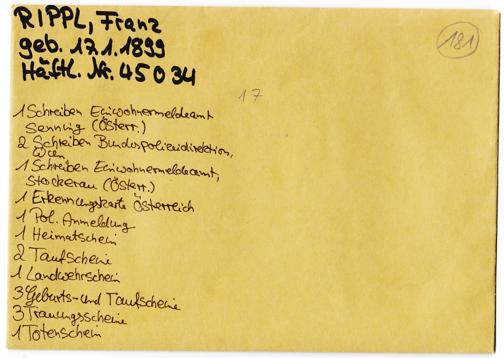 RIPPL, Franz
geb. 17.1.1899
Häftl. Nr. 45034
181
17
1 Schreiben Einwohnermeldeamt
Senning (Österr.)
2 Schreiben Bundespolizeidirektion,
Wien
1 Schreiben Einwohnermeldeamt,
Stockerau (Österr.)
1 Erkennungskarte Österreich
1 Pol. Anmeldung
1 Heimatschein
2 Taufscheine
1 Landwehrschein
3 Geburts- und Taufscheine
3 Trauungsscheine
1 Totenschein